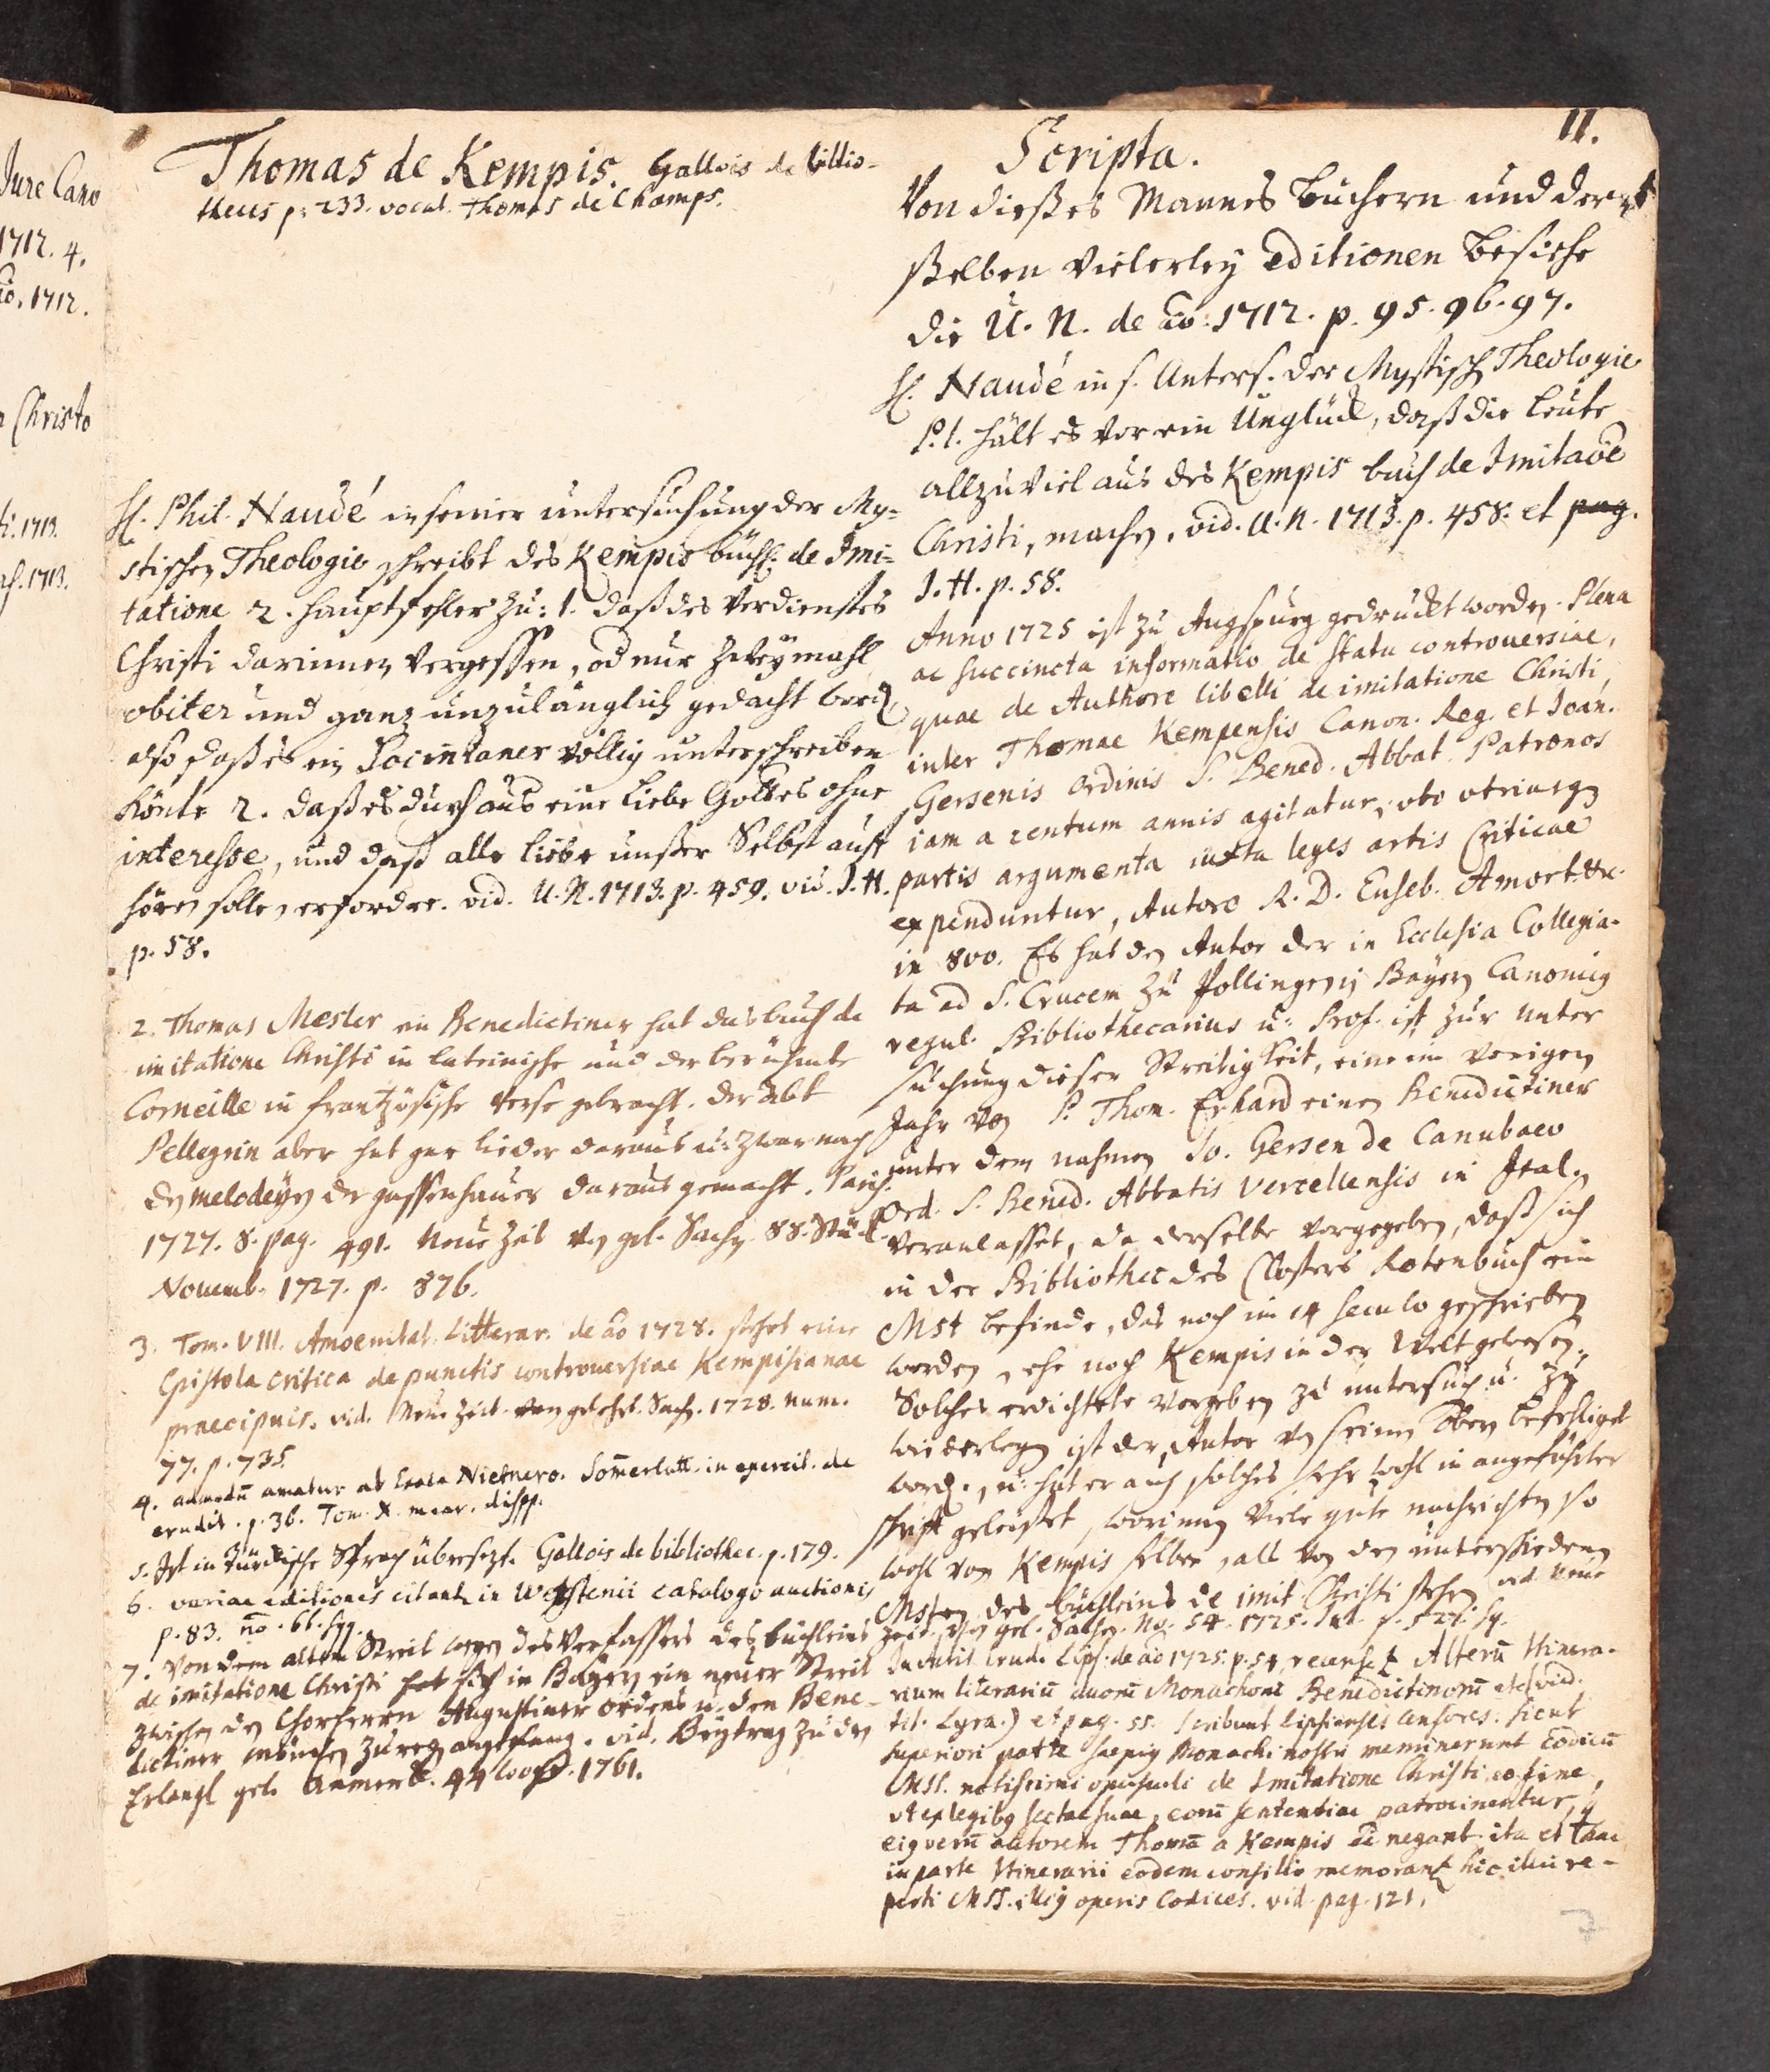 11.
Thomas de Kempis. Gallois de biblio-
thecis p. 233. vocat. Thomas de Champs.
H. Phil. Naudé in seiner untersuchung der My-
stischen Theologie schreibt des Kempis büchl. de Imi-
tatione 2. hauptfehler zu: 1. daß des Verdienstes
Christi darinnen vergessen, od nur zweymahl
obiter und ganz unzulänglich gedacht werd,
also daß es ein Socinianer völlig unterschreiben
könte 2. daß es durchaus eine Liebe Gottes ohne
interesse, und daß alle liebe unßer Selbst auff
hören solle, erfordre. vid. U. N. 1713. p. 459. vid. I. H.
p. 58.
2. Thomas Mesler ein Benedictiner hat das buch de
imitatione Christi in lateinische und der berühmte
Corneille in frantzösische Verse gebracht. der Abt
Pellegrin aber hat gar lieder daraus u: zwar nach
den melodeyen der gassenhauer daraus gemacht. Paris.
1727. 8. pag. 491. Neue Zeit von gel. Sachen. 88. Stück
Novemb. 1727. p. 876.
3. Tom. VIII. Amoenitat. Litterar. de ao 1728. stehet eine
Epistola critica de punctis controversiae Kempisianae
praecipuis. vid. Neue Zeit. von gelehrt. Sach. 1728. num.
77. p. 735.
4. amatur ab Nietnero. in exercit. de
erudit. p. 36. Tom. X. disp.
5. Ist in Türckische Sprach übersezt. Gallois de bibliothec. p. 179.
6. variae editiones citant. in Westenii catalogo auctionis
p. 83. no. 66. sqq.
7. Von dem alten Streit wegen des Verfassers des büchleins
de imitatione Christi hat sich in Bayern ein neuer Streit
zwischen den Chorherren Augustiner ordens u. den Bene-
dictiner mönchen zu regen angefang. vid. Beytrag zu den
Erlang. gel. Anmerk. 44 Woche. 1761.
Scripta.
Von dießes Mannes Büchern und der
ßelben vielerley editionen besiehe
die U. N. de ao. 1712. p. 95. 96. 97.
H. Naudé in s. Unters. der Mystisch Theologie
P. 1. hält es vor ein Unglück, daß die leute
allzuviel aus des Kempis buch de Imitaoe
Christi, machen, vid. U. N. 1713. p. 458. et pag.
I. H. p. 58.
Anno 1725 ist zu Augspurg gedruckt worden. Plena
ac succincta informatio de statu controversiae,
quae de Authore libelli de imitatione Christi,
inter Thomae Kempensis Canon. Reg. et Joan.
Gersenis Ordinis S. Bened. Abbat. Patronos
iam a centum annis agitatur, ubi utriusq
partis argumenta iuxta leges artis Criticae
expenduntur, Autore R. D. Euseb. Amort etc.
in 8vo. Es hat den Autor der in Ecclesia Collegia-
ta ad S. Crucem zu Pollingen in Bayern Canonicus
regul. Bibliothecarius u: Prof. ist zur Unter
suchung dieser Streitigkeit, eine im vorigen
Jahr von P. Thom. Erhard einen Benedictiner
unter dem nahmen Jo. Gersen de Canabaco
Ord. S. Bened. Abbatis Vercellensis in Ital.
veranlasset, da derselbe vorgegeben, daß sich
in der Bibliothec des Closters Rotenbuch ein
Mst befinde, das noch im 14 seculo geschrieben
worden, ehe noch Kempis in der Welt gewesen.
Solches erdichtete vorgeben zu untersuch u. zu
wiederlegen ist der Autor von seinen Obern befehliget
word., u: hat er auch solches sehr wohl in angeführter
schrift geleistet, worinnen viele gute nachrichten so
wohl von Kempis selber, alß von den unterschiedenen
Msten des büchleins de imit Christi stehen vid Neue
Zeit. von gel. Sachen. No. 54. 1725. Jul. p. 527. sq.
In Actis Erud. Lips: de ao 1725. p. 54, recenset Alterum Itinera-
rium literarium duorum Monachorum Benedictinorum etc (vid.
tit. Lyra.) et pag. 55. scribunt Lipsienses Censores: sicut
superiori parte saepius Monachi nostri meminerunt codicum
MSS. notissimi opusculi de Imitatione Christi, eo fine,
ut ex legibus sectae suae, eorum sententiae patrocinentur, q
eius verum autorem Thomam a Kempis ee negant. ita et hac
in parte Itinerarii eodem consilio memorant hic ibi re-
perti MSS. illius operis Codices. vid. pag. 121.